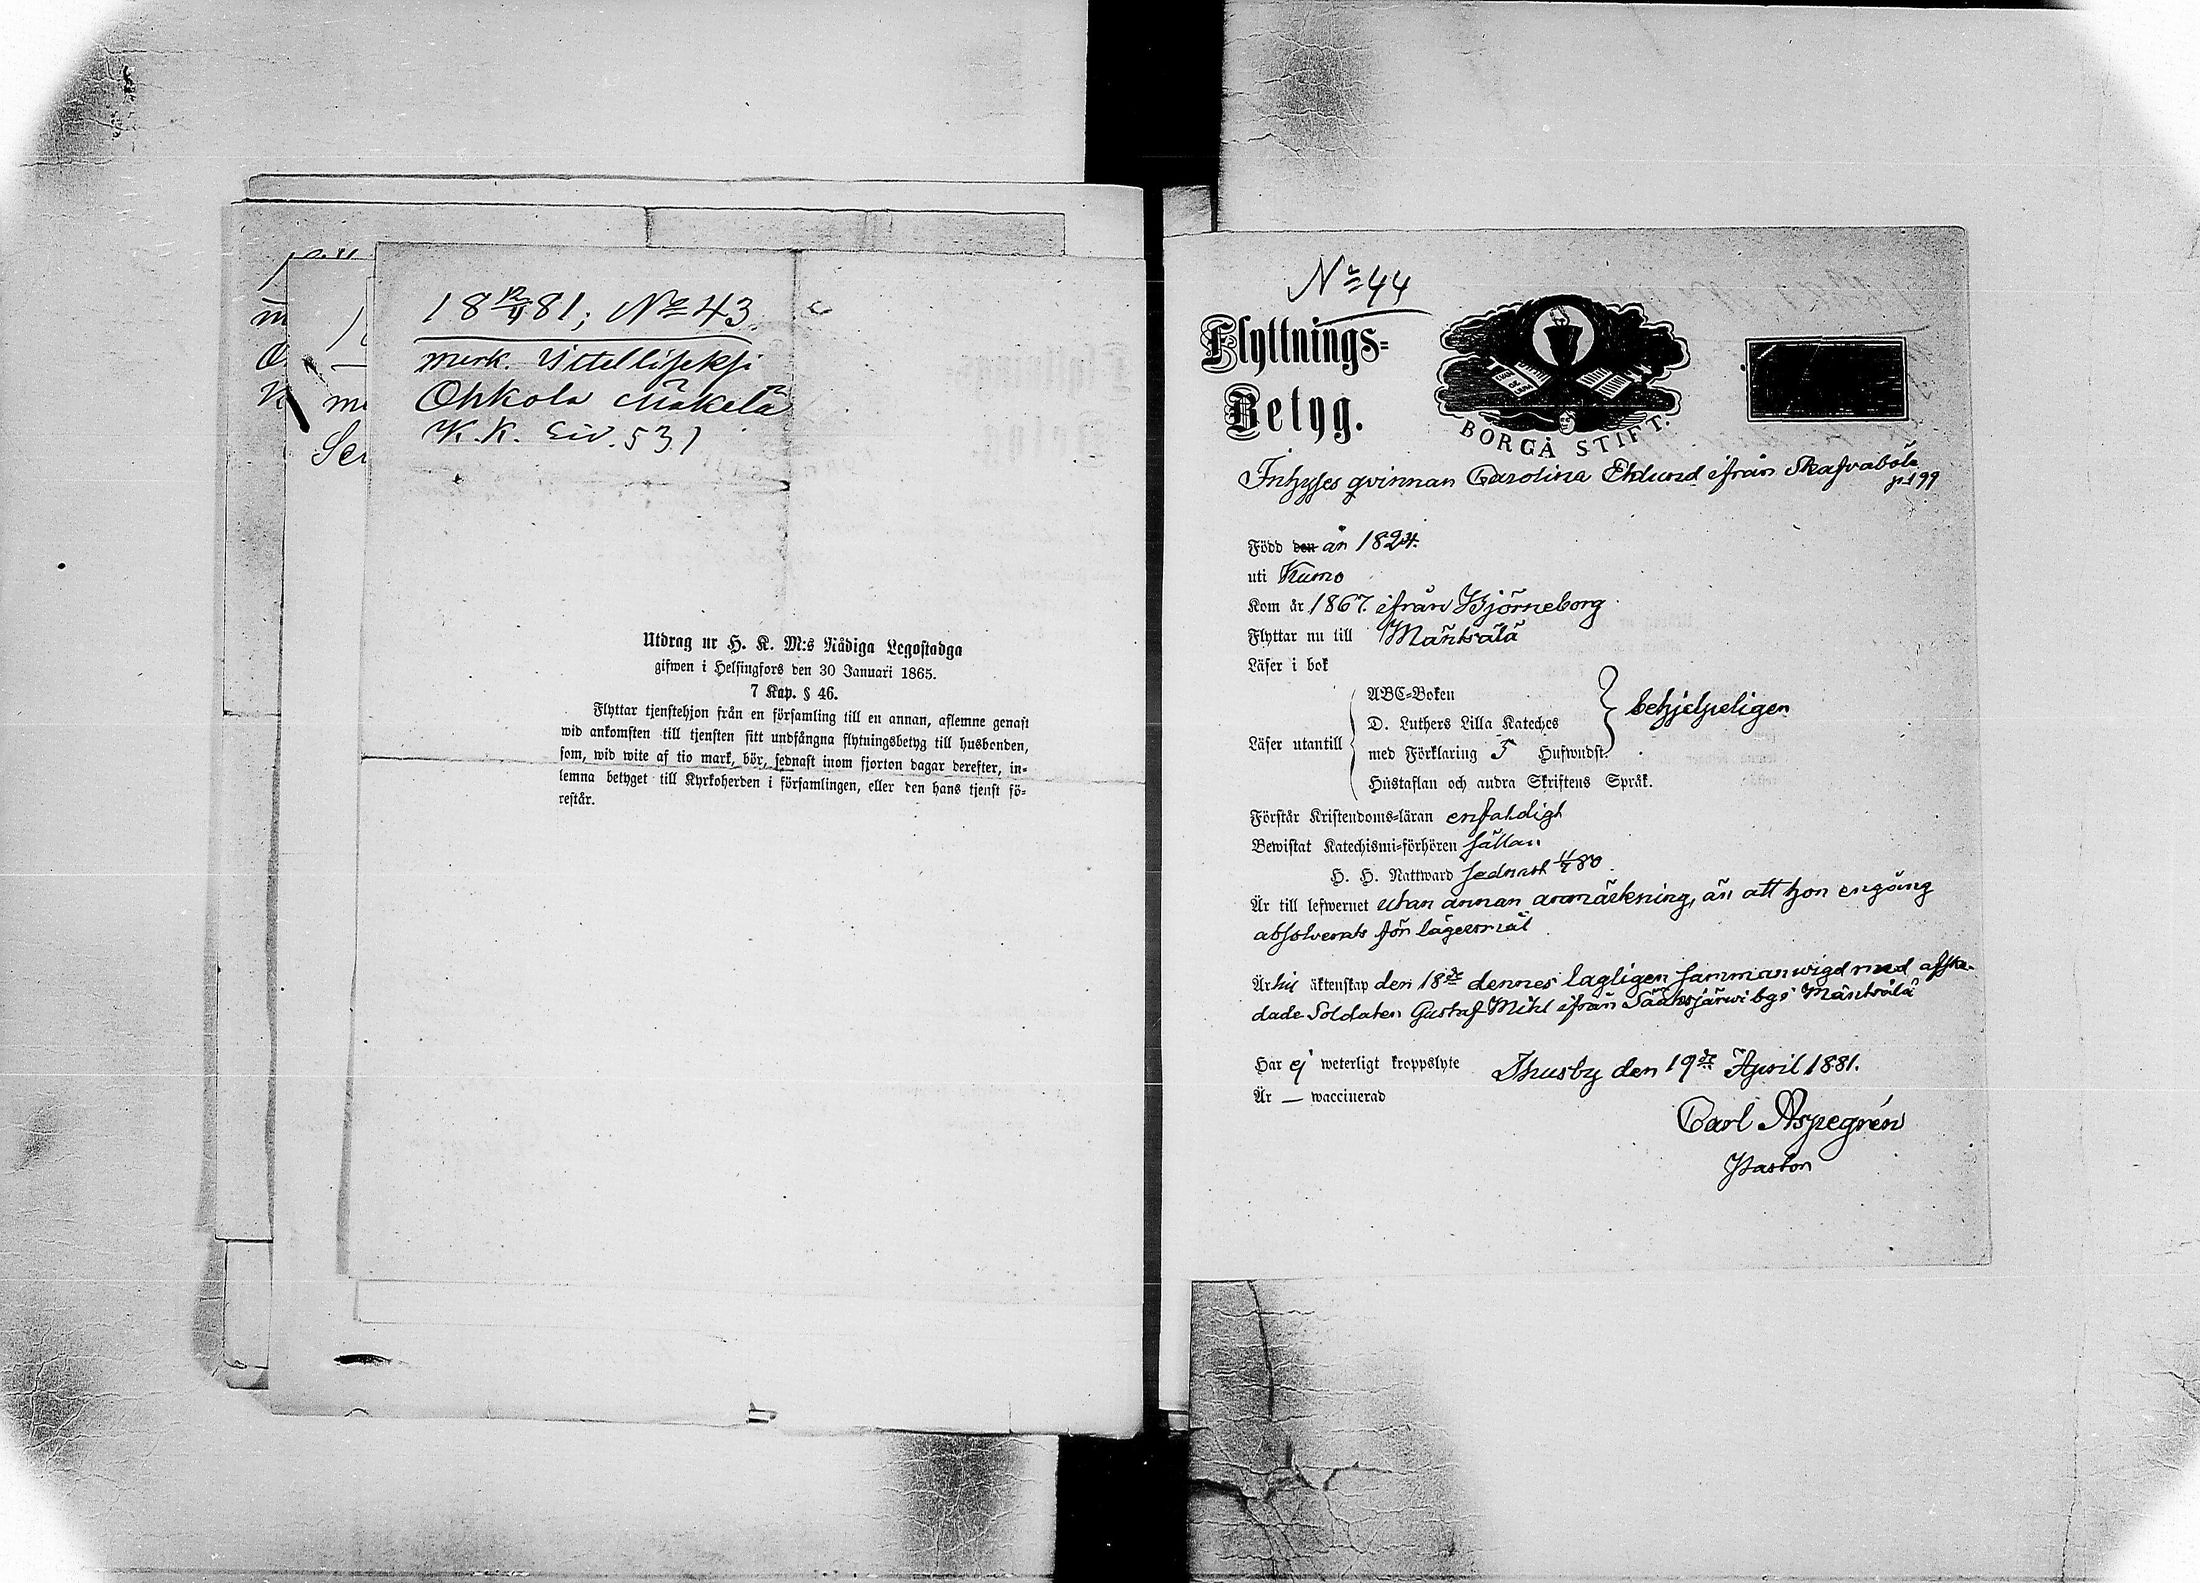 18 12/4 81; No 43
merk. Sittellijeksi
Ohkola Mäkelä
K. K. Siv. 531
Utdrag ur H. K. M:s Nådiga Legostadga
gifwen i Helsingfors den 30 Januari 1865.
7 Kap. § 46.
Flyttar tjenstehjon från en församling till en annan, aflemne genast
wid ankomsten till tjensten sitt undfångna flytningsbetyg till husbonden,
som, wid wite af tio mark, bör, sednast inom fjorton dagar derefter, in-
lemna betyget till Kyrkoherden i församlingen, eller den hans tjenst fö-
restår.
No 44
Flyttnings-
Betyg.
BORGÅ STIFT.
Inhyses qvinnan Carolina Eklund ifrån Skafvaböle
p. 199
Född den år 1824.
uti Kumo
Kom år 1867. ifrån Björneborg
Flyttar nu till Mäntsälä
Läser i bok
ABC-Boken
D. Luthers Lilla Kateches
Läser utantill
med Förklaring 5 Hufwudst.
behjelpeligen
Hustaflan och andra Skriftens Språk.
Förstår Kristendoms-läran enfaldigt
Bewistat Katechismi-förhören sällan
H. H. Nattward sednast 11/7 80.
Är till lefwernet utan annan anmärkning, än att hon engång
absolverats för lägersmål
Är till äktenskap den 18de dennes lagligen sammanwigd med afske-
dade Soldaten Gustaf Mihl ifrån Sääksjärwi by i Mäntsälä
Har ej weterligt kroppslyte
Thusby den 19de April 1881.
Är — waccinerad
Carl Aspegrén
Pastor